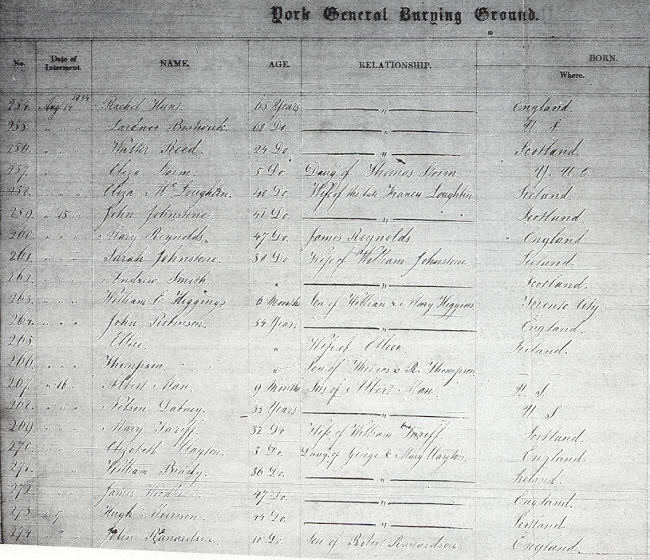 York General Burying Ground.
No. Date of Interment. NAME. AGE. RELATIONSHIP. BORN. Where.
254. Aug 14 1834 Rachel Hunt. 65 Years " England.
255. " " " Lardner Bostwick 60 Do. "
256. " " " Walter Reed. 24 Do. " Scotland.
257. " " " Eliza 5 Do Daug of Thomas U. C
258. " " " Eliza Mc Loughlin. 40 Do. Wife of the late Francis Loughlin Ireland.
259. " 15 " John Johnstone. 41 Do " Scotland
260. " " " Mary Reynolds. 47 Do. James Reynolds. England
261. " " " Sarah Johnstone. 30 Do " Wife of William Johnstone
262. " " " Andrew Smith. " " Scotland.
263. " " " William C Higgings 6 Months Son of William & Mary Higgins Toronto City.
264. " " " John Robinson. 54 Years " England.
265. " " " " Wife of Ireland.
266. " " " Thompson. " Son of Thomas & R. Thompson
267. " 16 " Albert Man. 9 Months Son of Albert Man. U. S.
268. " " " Nelson Dabney. 35 Years " U S
269. " " " Mary 32 Do Wife of William Scotland.
270. " " " Elizabeth Clayton. 3 Do. Daug. of George & Mary Clayton. England.
271. " " " William Brady. 36 Do. " Ireland.
272. " " " James 47 Do. " England.
273 " 17 " Hugh Morrison. 44 Do " Scotland
274 " " " John Ranardson 10 Do. Son of Robert Ranardson England